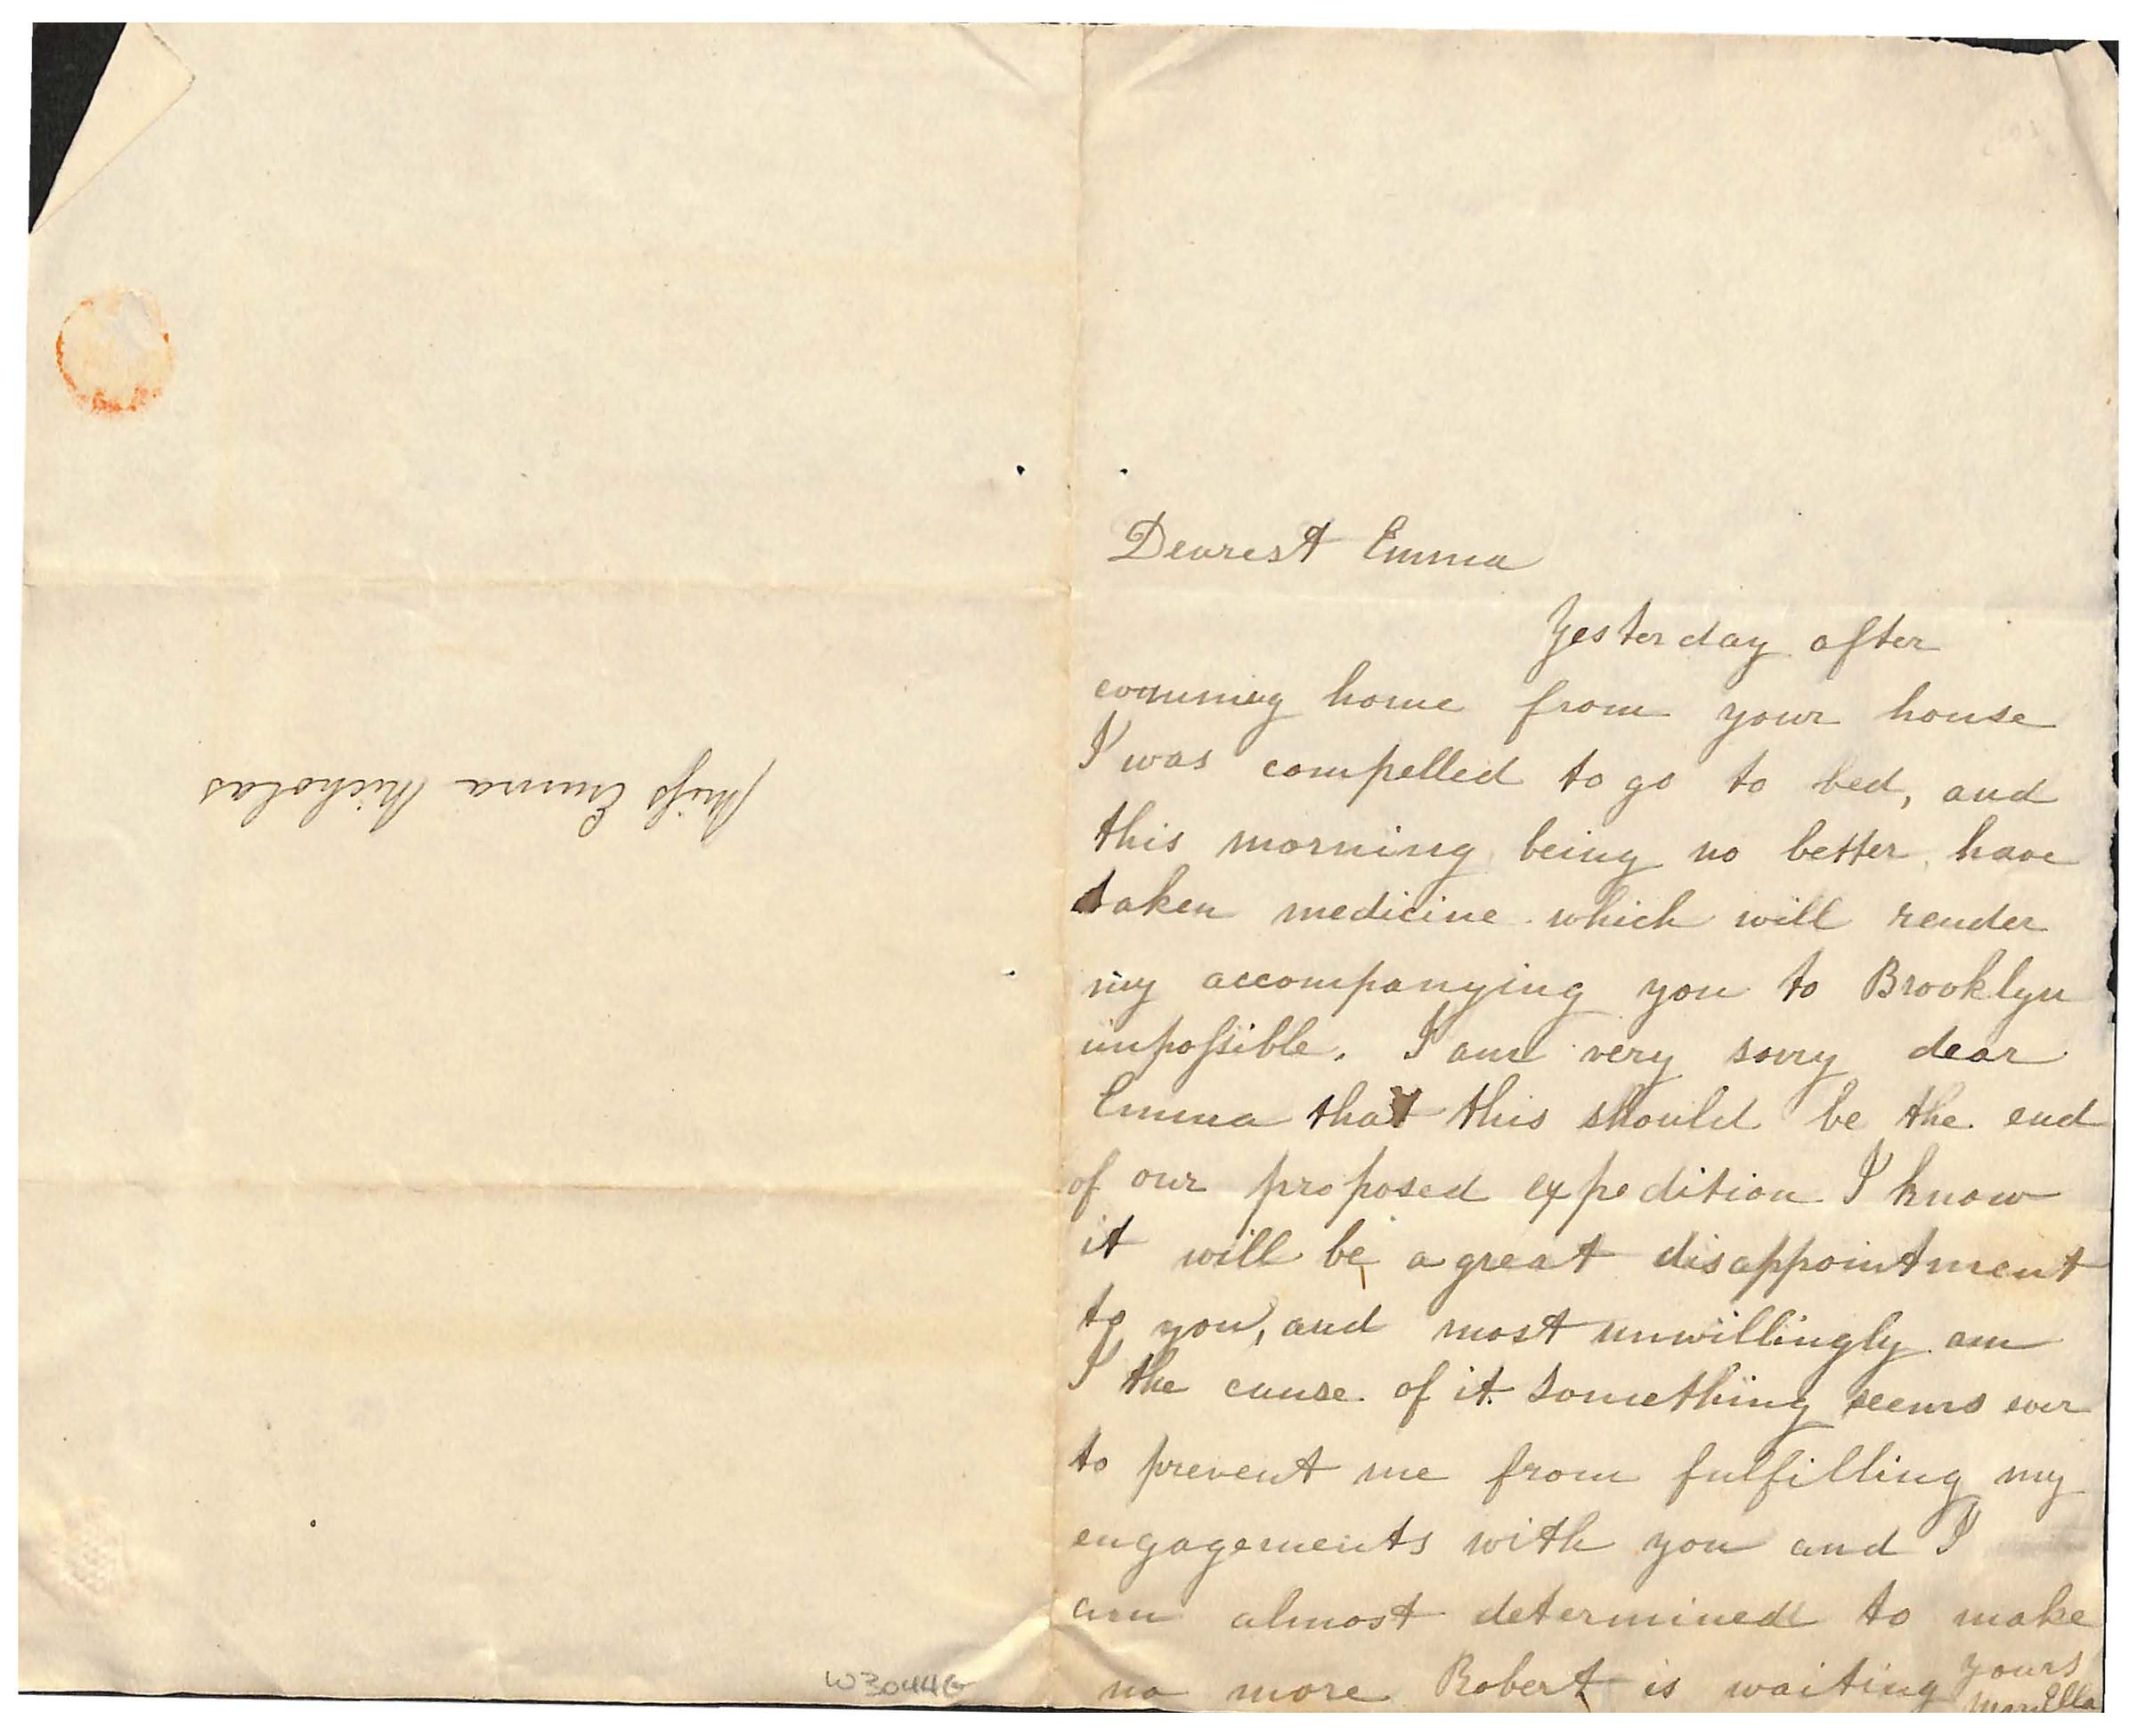 Miſs Emma Nicholas
Dearest Emma
Yesterday after
comming home from your house
I was compelled to go to bed, and
this morning being no better have
taken medicine which will render
my accompanying you to Brooklyn
impoſsible. I am very sorry dear
Emma that this should be the end
of our proposed expedition I know
it will be a great disappointment
to you, and most unwillingly am
I the cause of it. Something seems ever
to prevent me from fulfilling my
engagements with you and I
am almost determined to make
no more Robert is waiting yours
W3044G